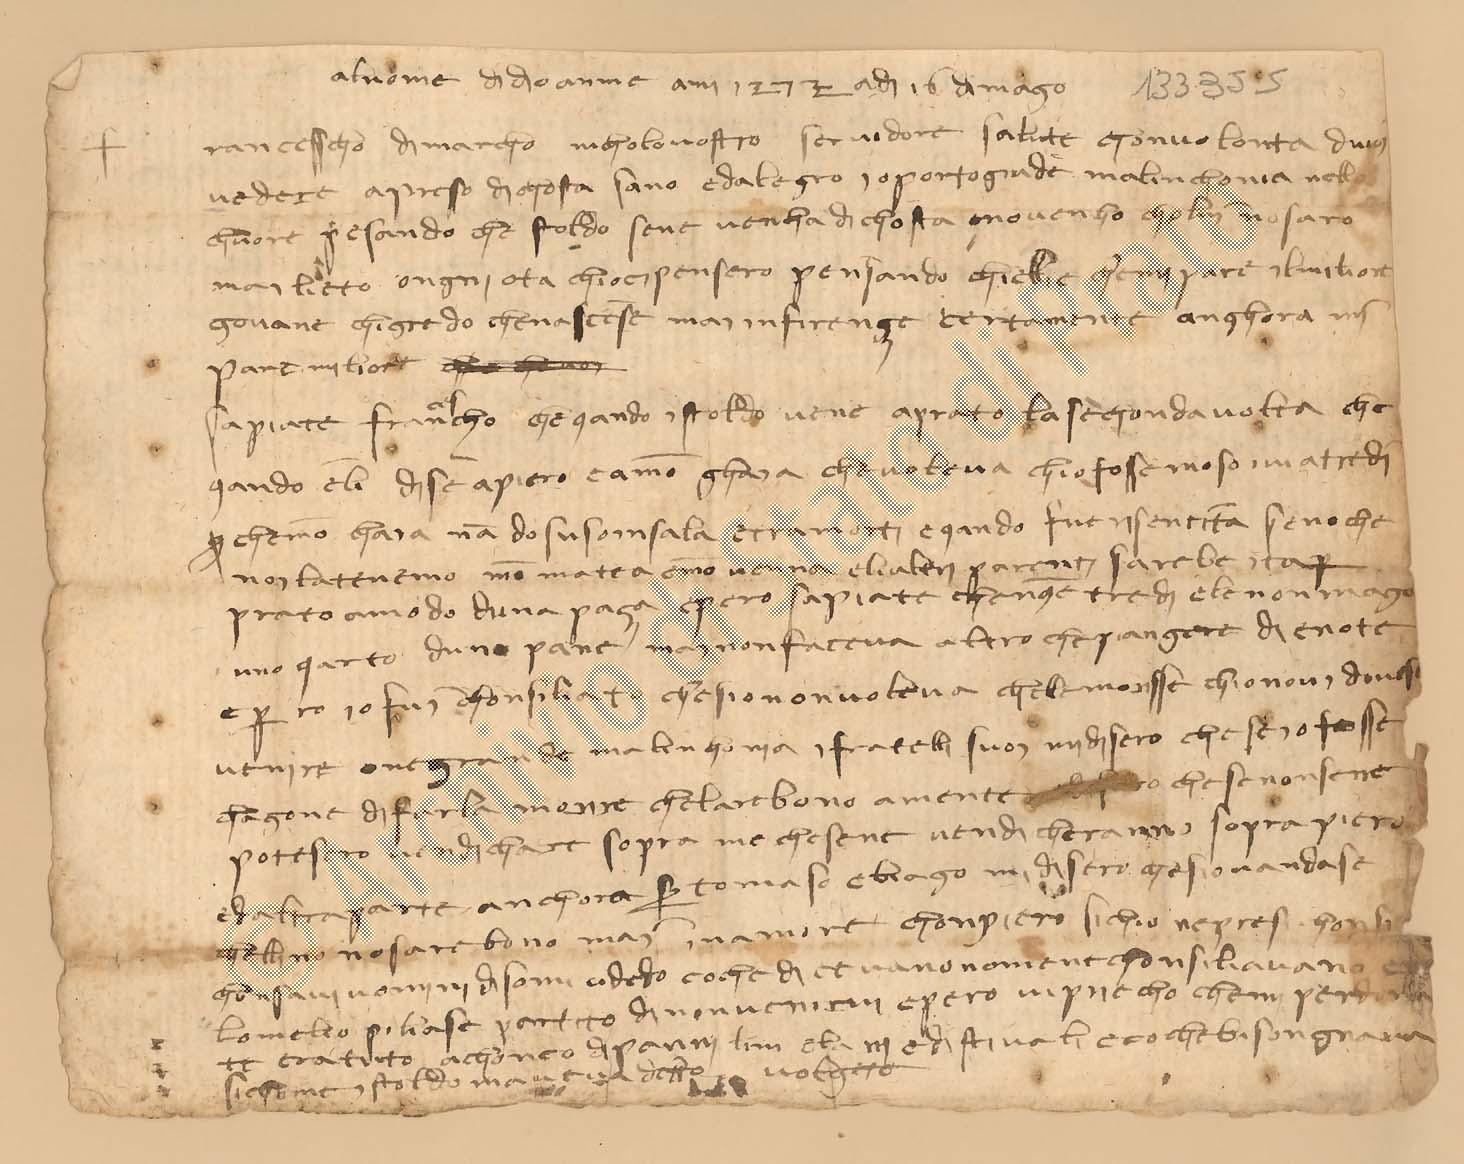 al nome di dio amme ani 1372 adi 16 di magio 133.355
+ rancesscho di marcho nicholo vostro servidore salute chonvolonta di voi
vedere apreso di chosta sano ed alegro io porto grade malinchonia nello
chuore pesando che stoldo sene venha di chosta e no venho cholui no saro
mai lieto ongni ota chio ci pensero pensando chielie che mi pare il miliore
govane chi gredo che nascese mai in firenze certamente anghora mi
pare miliore che che voi
sapiate francescho che qando istoldo vene a prato la sechonda volta che
qando eli dise a piero e a mo ghaia che voleva chio fosse moso ivi a tre di
p che mo ghaia n'a do suso in sala e tramorti e qando fue risentita se no che
noi la tenemo mo matea e mo vanna eli altri parenti sarebe ita p
prato a modo di una paza e pero sapiate che n que tre di ele non magio
uno qarto duno pane mai non faceva altro che piangere di e note
e p ro io fui chonsiliato che sio non voleva chela morisse chio no vi dovesi
venire one grande malenchonia i frateli suoi mi disero che se io fosse
chagone di farla morire che larebono a mente che se non sene
potesero vendichare sopra me che sene vendicheranno sopra piero
ed altra parte anchora s tomaso e biago mi disero che sio vandase
chelino no sarebono mai in amore chon piero sichio ne presi chonsi
chon savi uomini di sonu codedo coche di certuano no mene chonsiliavano e
lo melio piliase partito di non venirvi e pero vi priecho che mi perdonia
te era tuto achonco di panni lini e lani e di stivali e co che bisongnava
sichome istoldo ma veva detto volgete